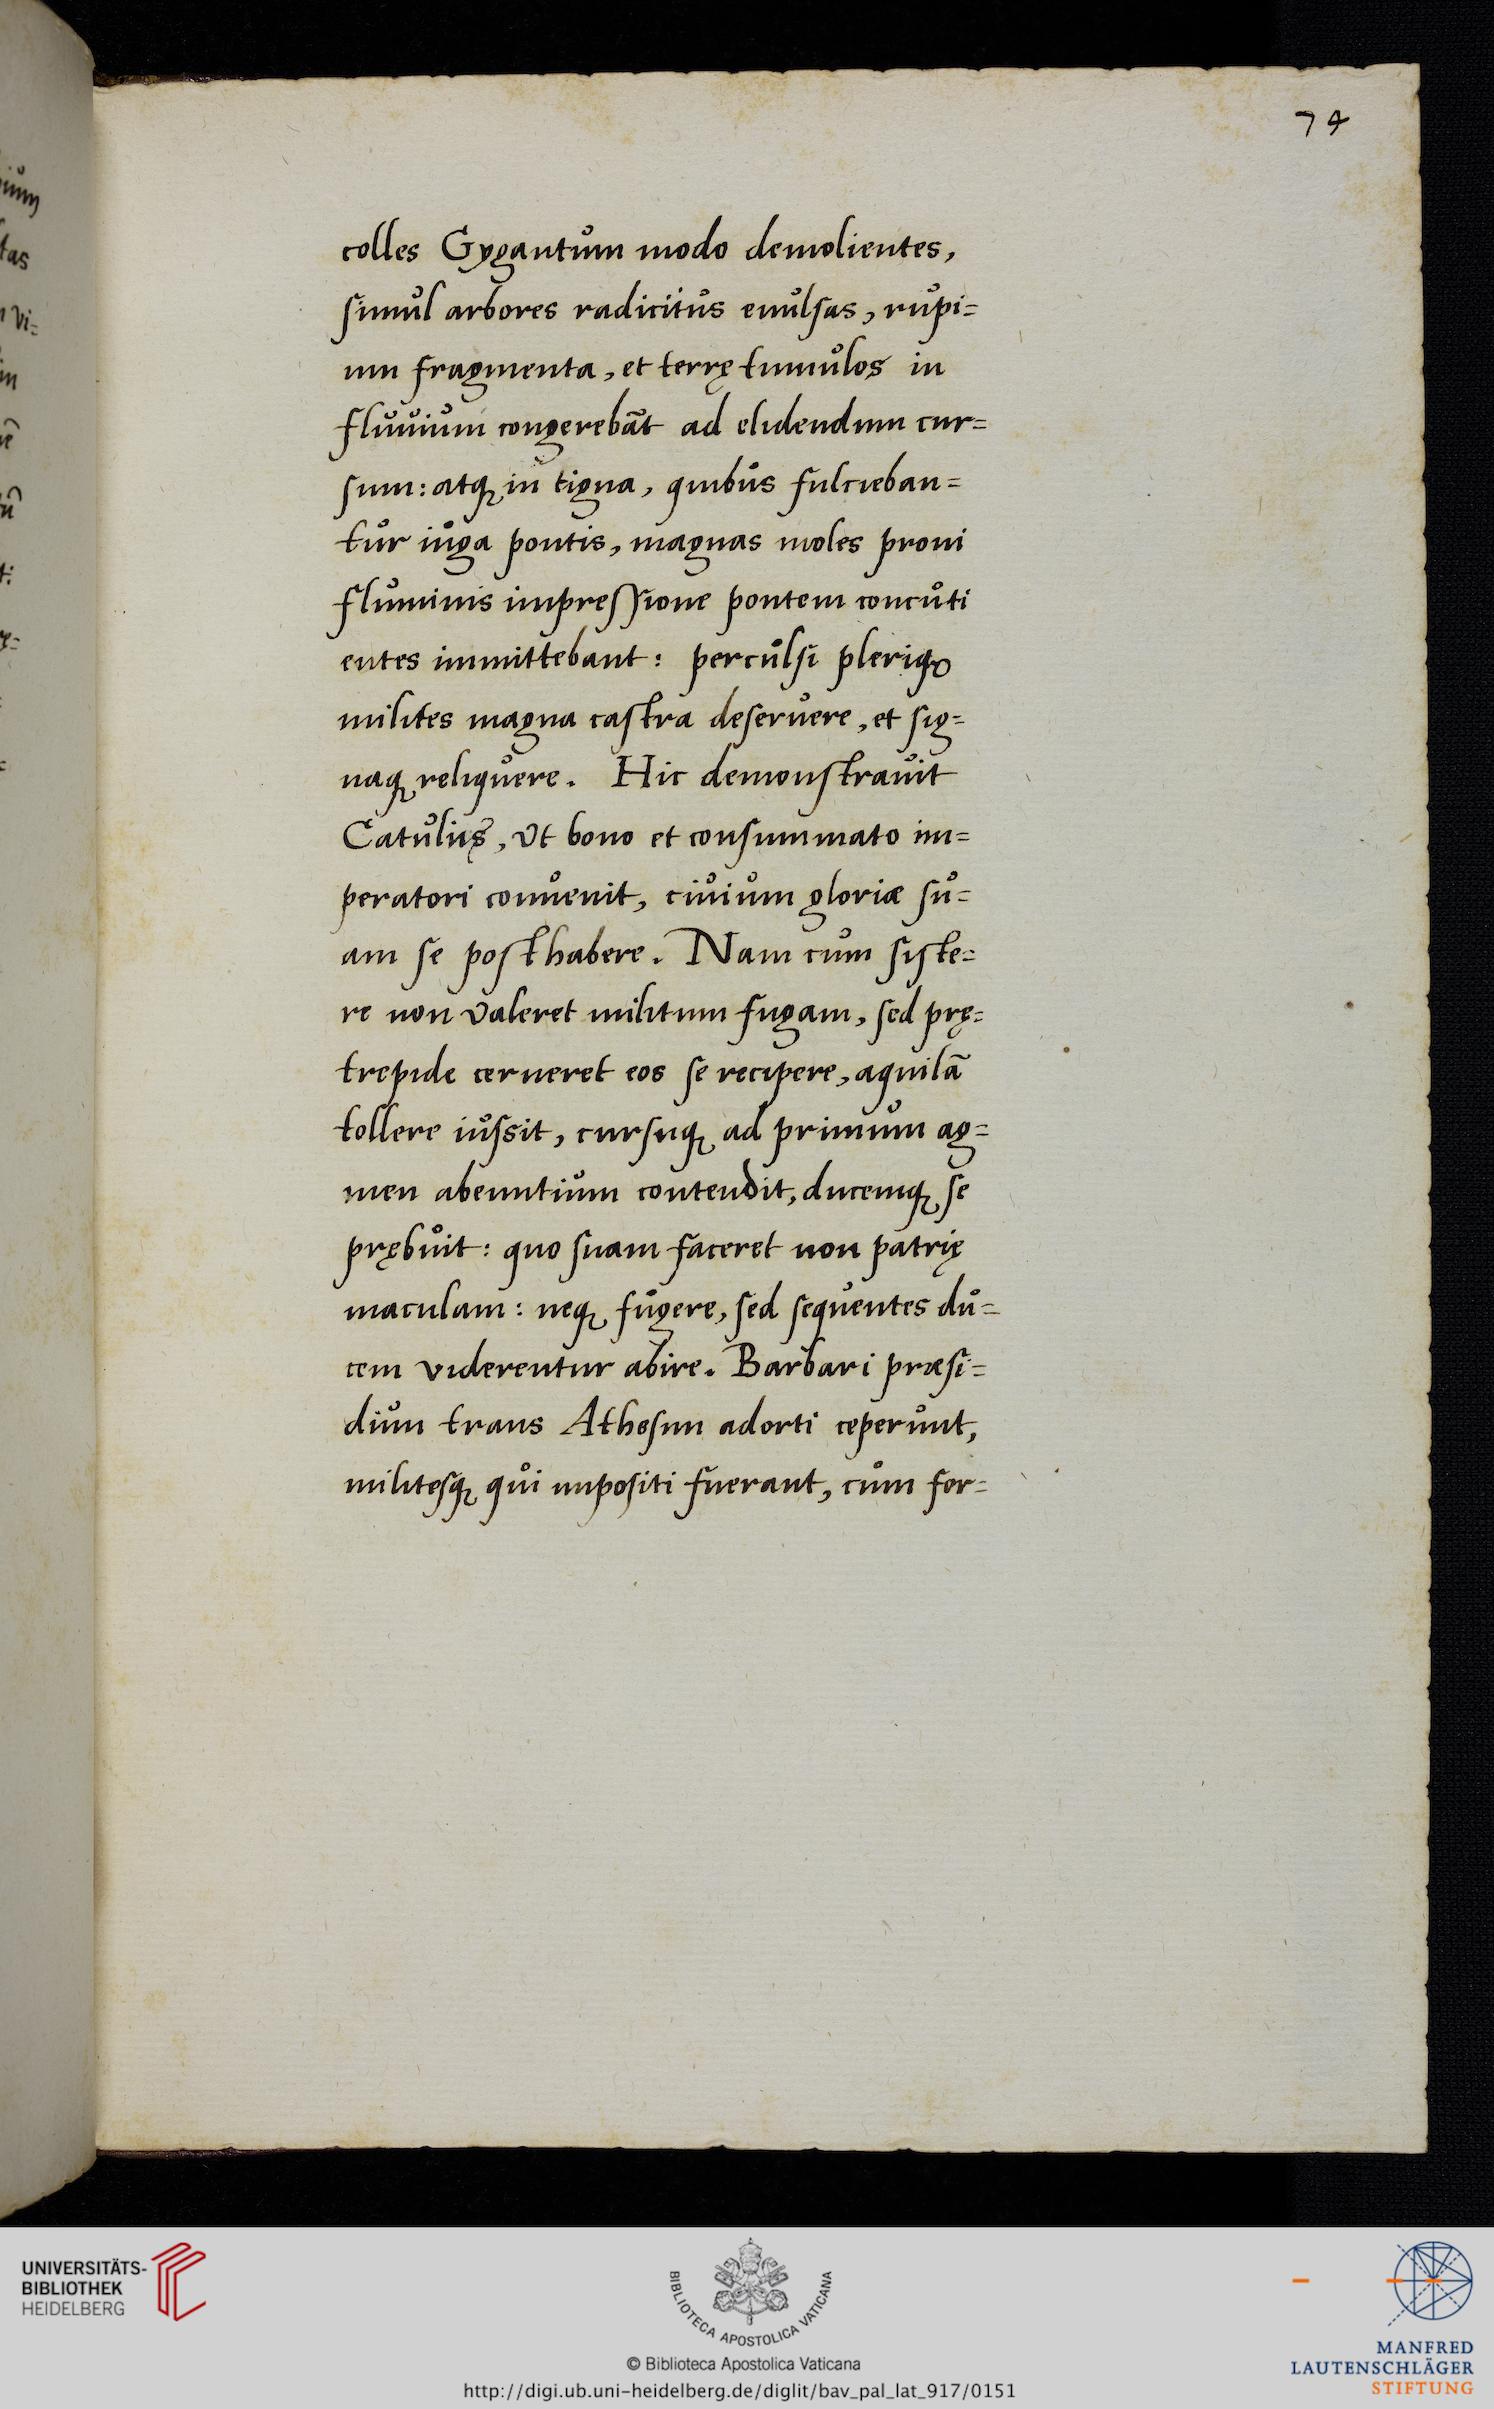 74
colles Gygantům modo demolientes,
simůl arbores radicitůs enůlsas, růpi=
um fragmenta, et terrę tumůlos in
flůuiům congerebāt ad elidendum cur=
sum: atq, in tigna, quibůs fulcieban=
tůr iůga pontis, magnas moles proni
flůminis impressione pontem concůti
entes immittebant: percůlsi pleriq
milites magna castra deserůere, et sig=
naq, reliqůere. Hic demonstraůit
Catůlus, vt bono et consummato im=
peratori conůenit, ciůiům gloriæ sů=
am se posthabere. Nam cům siste=
re non valeret militum fugam, sed prę=
trepide cerneret eos se recipere, aquilā
tollere iůssit, cursuq, ad primům ag=
men abeuntiům contendit, ducemq, se
prębůit: quo suam faceret non patrię
maculam: neq, fůgere, sed seqůentes dů=
cem viderentur abire. Barbari præsi=
diům trans Athesim adorti ceperůnt,
militesq, qůi impositi fuerant, cům for=
UNIVERSITÄTS-
BIBLIOTHEK
HEIDELBERG
BIBLIOTECA APOSTOLICA VATICANA
© Biblioteca Apostolica Vaticana
http://digi.ub.uni-heidelberg.de/diglit/bav_pal_lat_917/0151
MANFRED
LAUTENSCHLÄGER
STIFTUNG